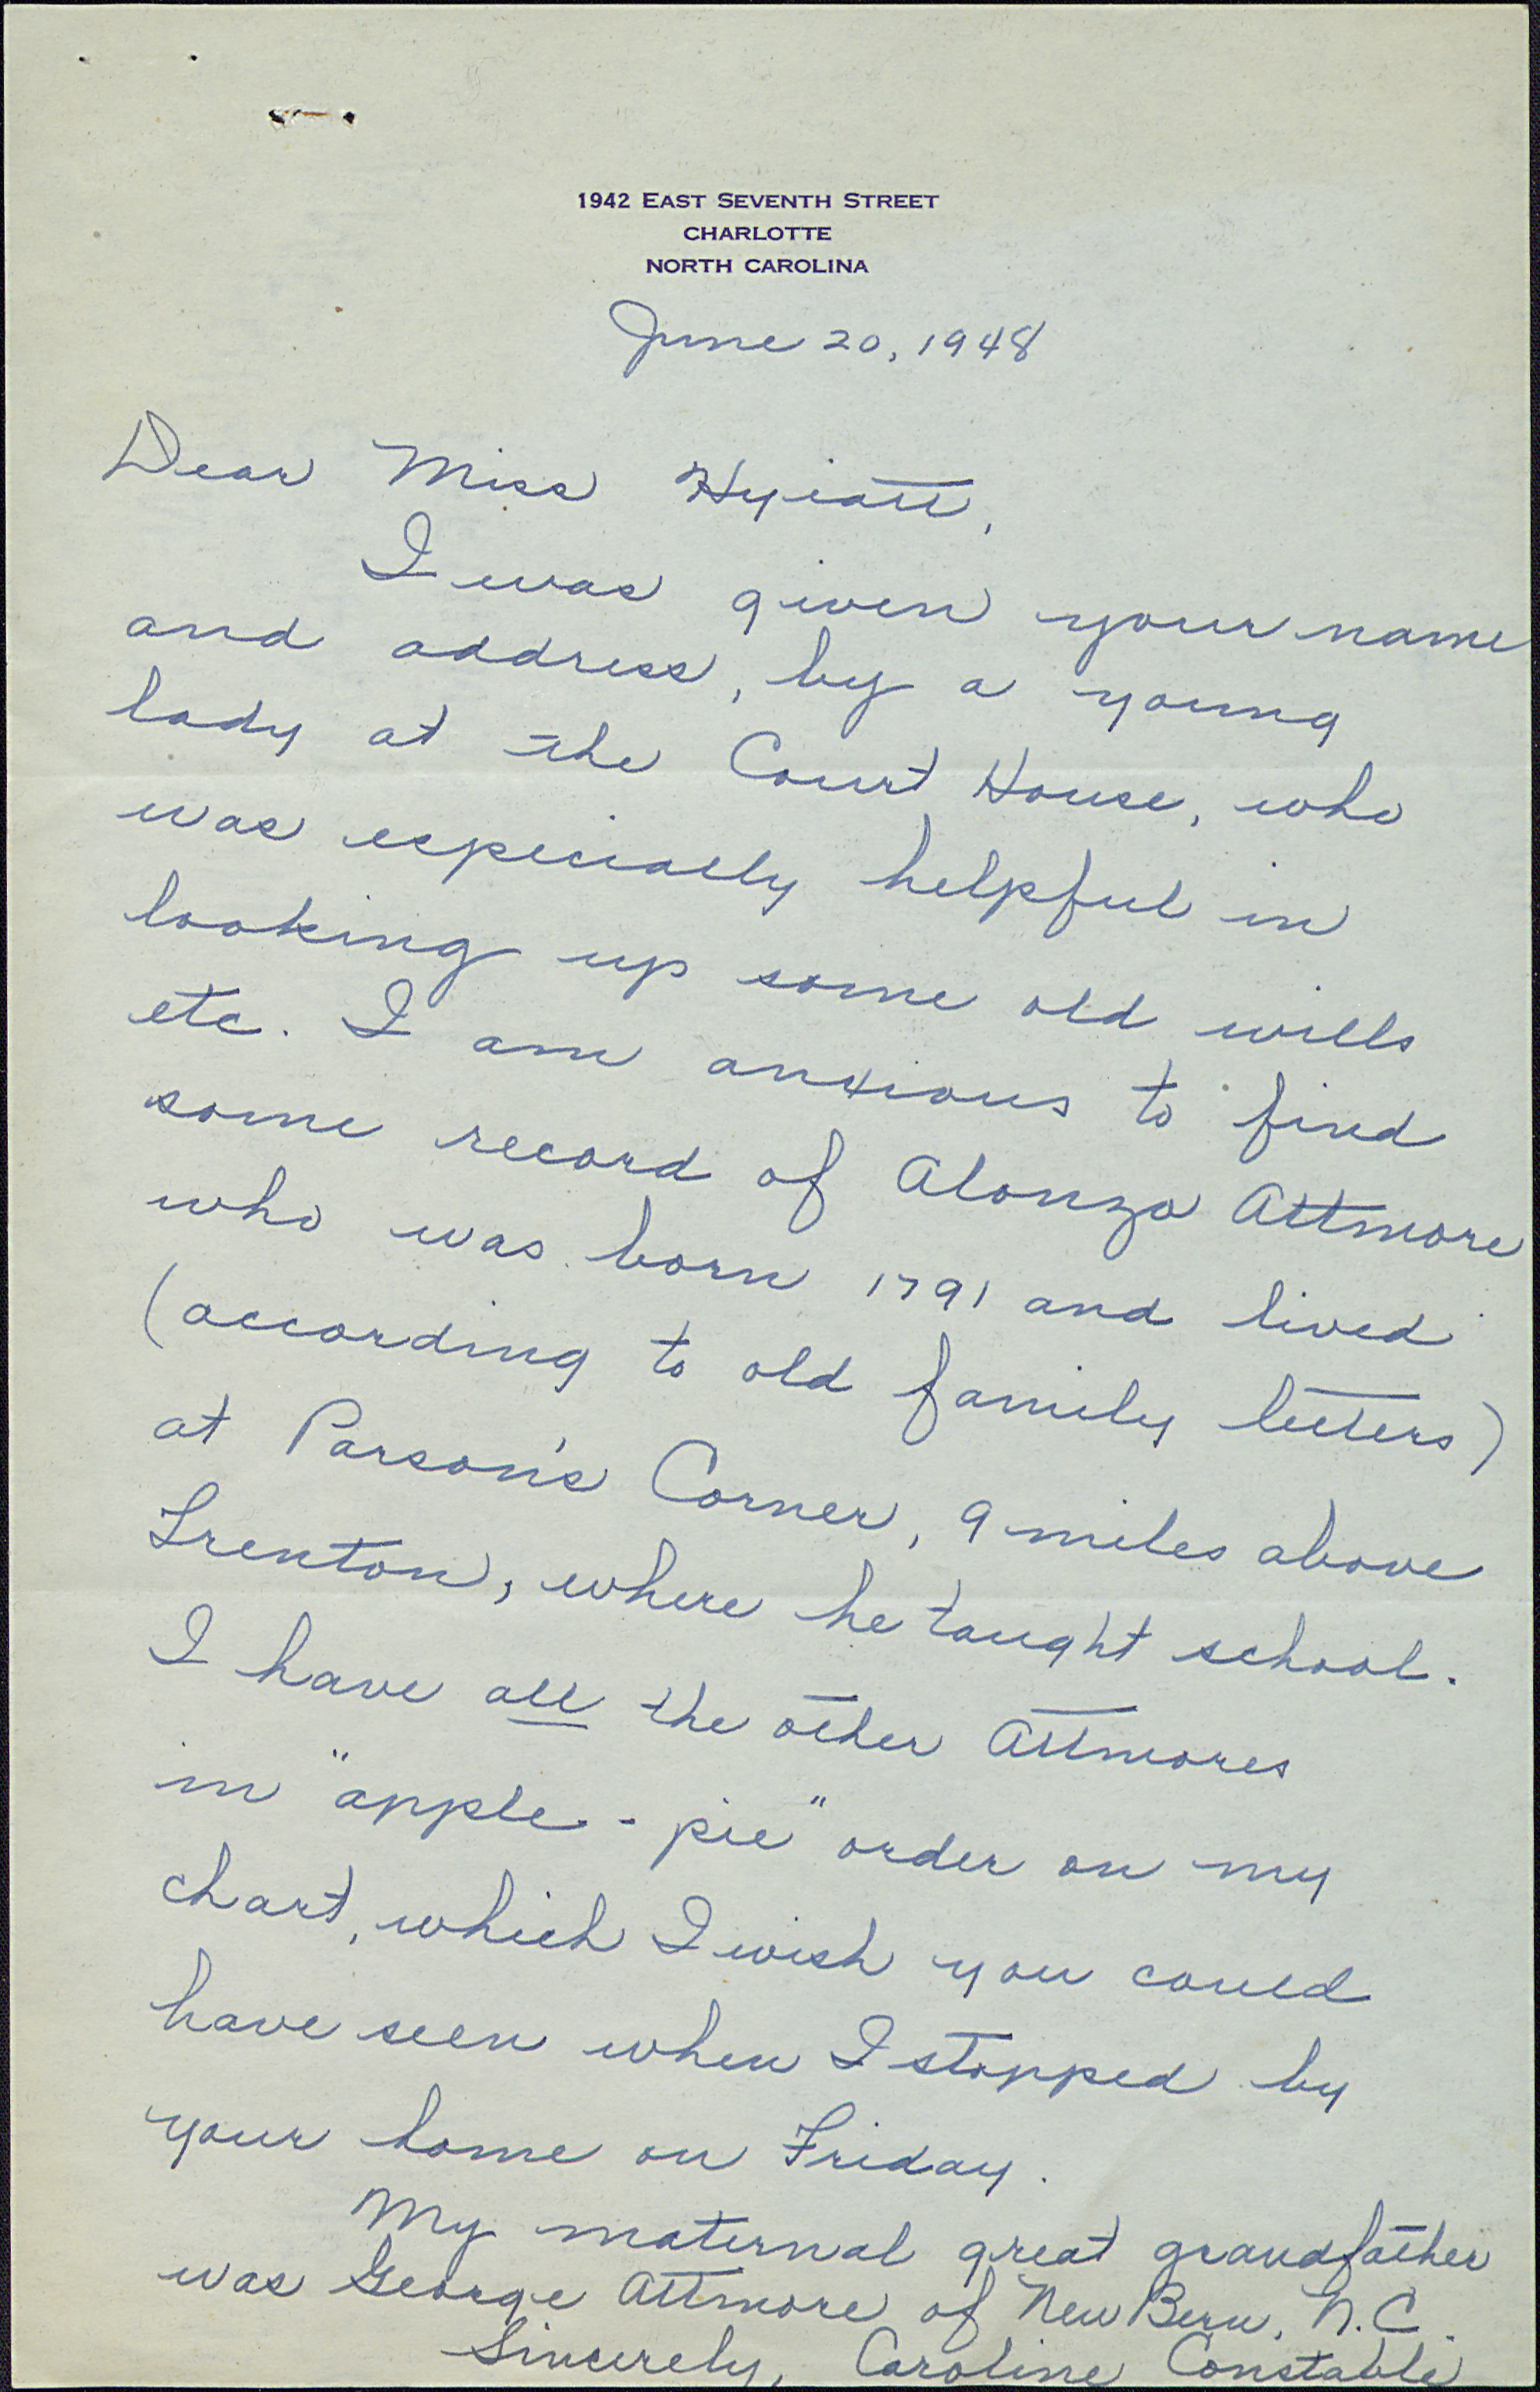 1942 EAST SEVENTH STREET
CHARLOTTE
NORTH CAROLINA
June 20, 1948
Dear Miss Hyiatt,
I was given your name
and address, by a young
lady at the Court House, who
was especially helpful in
looking up some old wills
etc. I am anxious to find
some record of Alonzo Attmore
who was born 1791 and lived
(according to old family letters)
at Parson's Corner, 9 miles above
Trenton, where he taught school.
I have all the other Attmores
in "apple-pie" order on my
chart, which I wish you could
have seen when I stopped by
your home on Friday.
My maternal great grandfather
was George Attmore of New Bern, N.C.
Sincerely, Caroline Constable